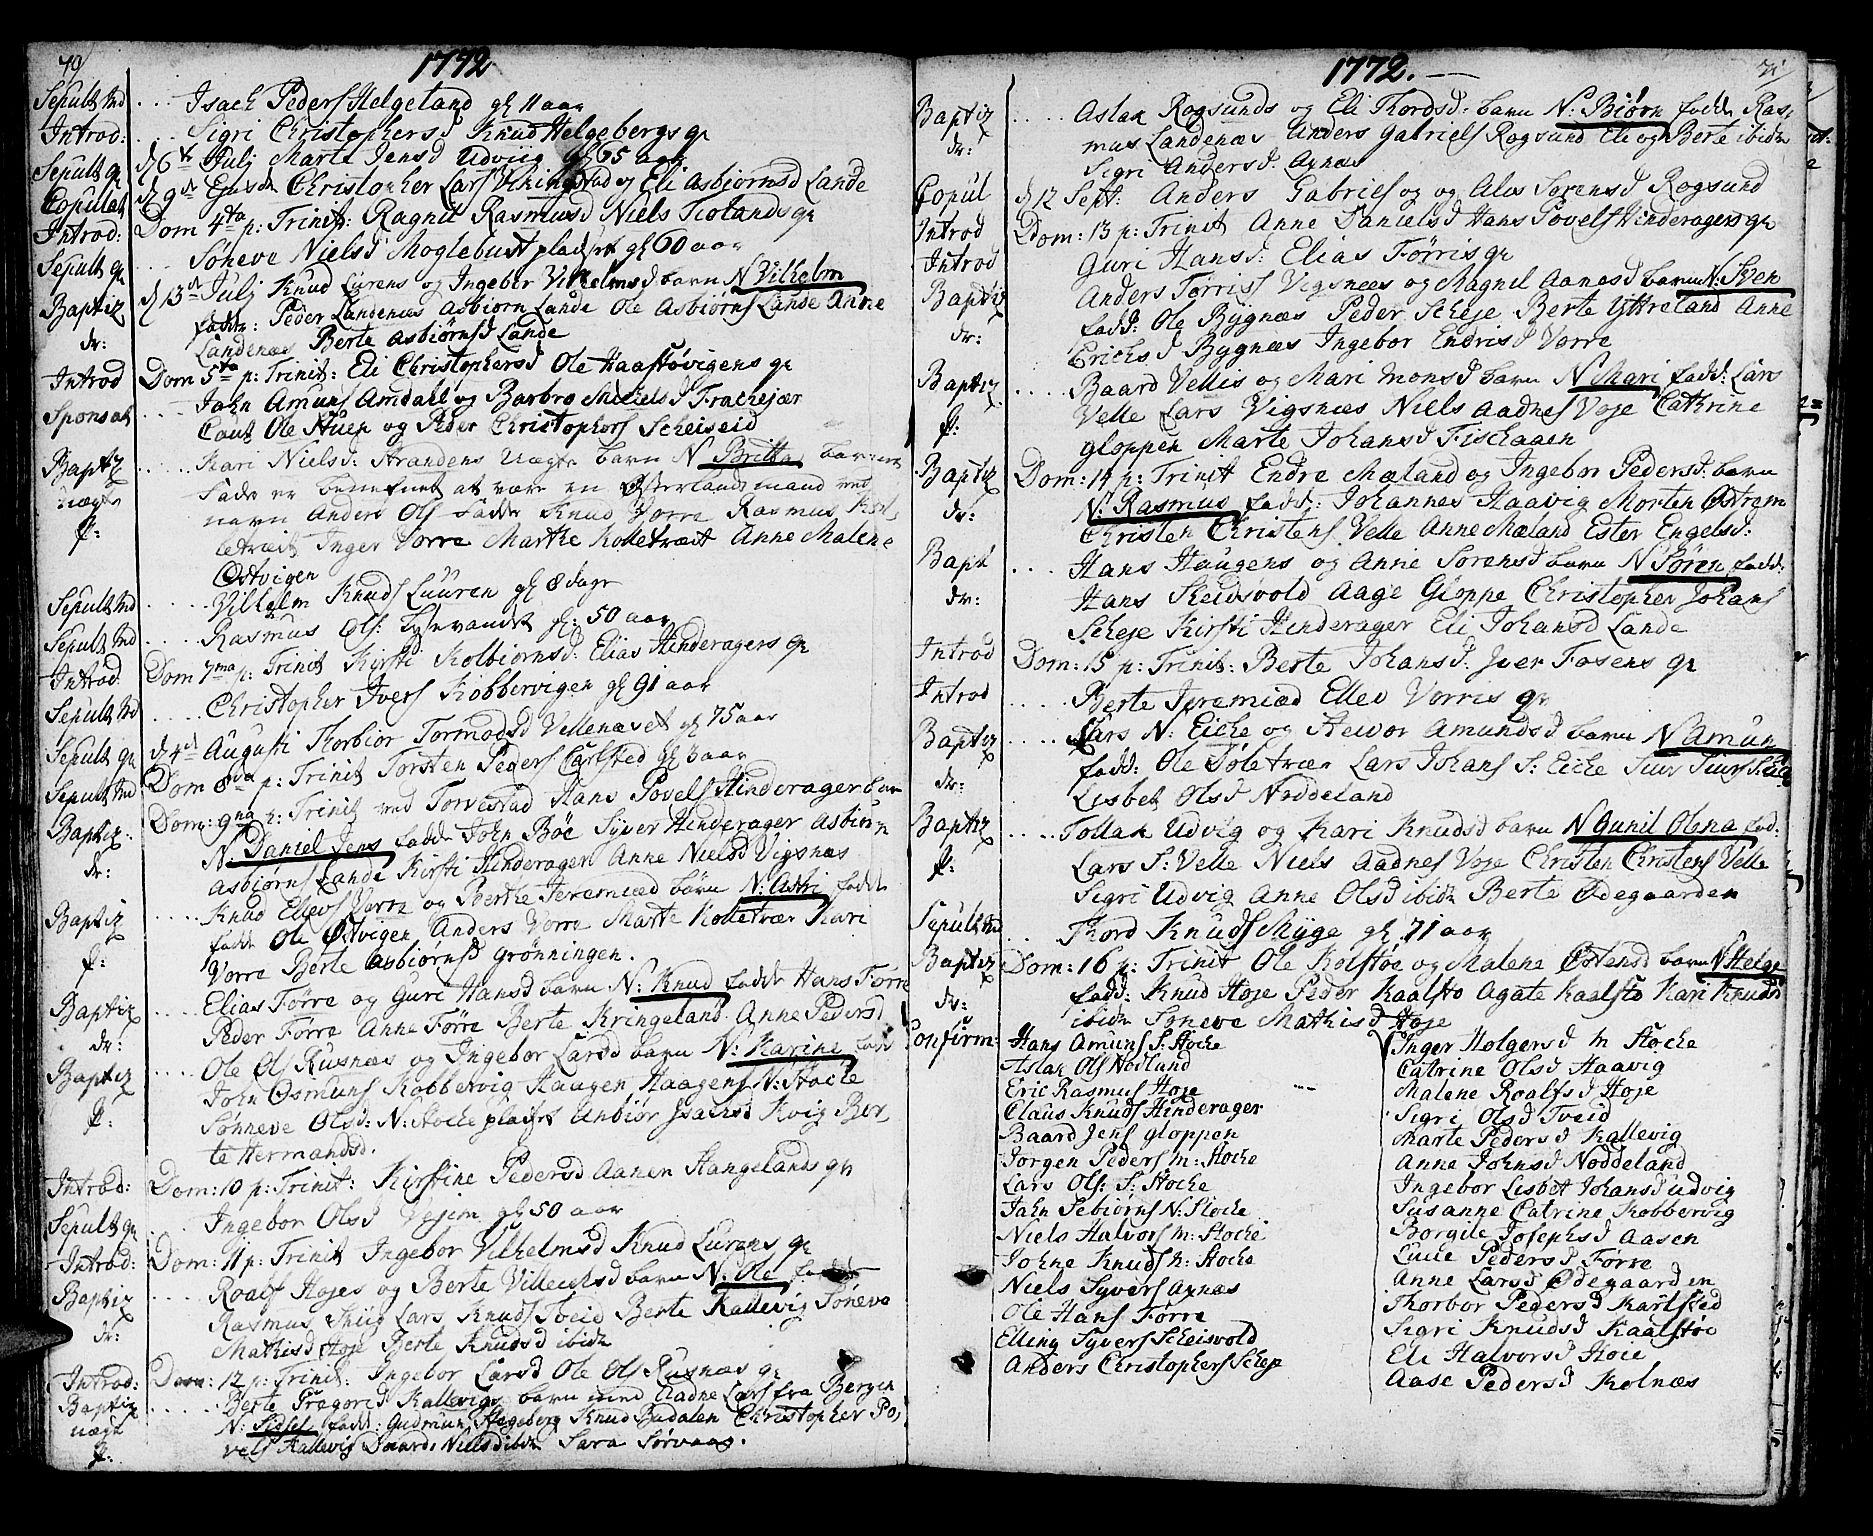 70
1772
Sepult Md .... Isach Peders Helgeland gl 11 aar
Introd: .... Sigri Christophersd Knud Helgebergs qe
Sepult qe d 6te Julj Marte Jensd Udviig gl 65 aar
Copulat d 9de Christopher Lars Vikingstad og Eli Asbiørnsd Lande
Introd: Dom 4ta p: Trinit: Ragnil Rasmusd Niels Tiolands qe
Sepult qe .... Søneve Nielsd Moglebust gl 60 aar
Baptiz d 13de Julj Knud Lurens og Ingebor Vilhelmsd barn N Vilhelm
dr: fadr: Peder Landenæs Asbiørn Lande Ole Asbiørns Lande Anne
Landenæs Berte Asbiørnsd Lande
Introd Dom 5ta p: Trinit: Eli Christophersd Ole Haastøvigens qe
Sponsat .... Jahn Amuns Amdahl og Barbro Nielsd
Caut Ole Stuen og Peder Christophers Scheiseid
Baptiz .... Kari Nielsd: Strandens uægte barn N Britta barnets
uægte fader er benefnet at være en Østerlands mand ved
p: navn Anders Ols fadde Knud Vorre Rasmus Kol,
letræit Inger Vorre Marthe Kolletræit Anne Malene
Østvigen
Sepult Md .... Vilhelm Knuds Luuren gl 8 dage
Sepult Md .... Rasmus Ols: gl: 50 aar
Introd: Dom 7ma p: Trinit Kirsti Kolbiørnsd: Elias Hinderagers qe
Sepult Md .... Christopher Ivers Kobbervigen gl 91 aar
Sepult qe d 4de Augusti Thorbior Tormodsd Vellenæset gl 75 aar
Sepult Md Dom 8va p: Trinit Torsten Peders Carlsted gl 3 aar
Baptiz: Dom: 9na p: Trinit ved Torvestad Hans Povels Hinderager barn
dr: N: Daniel Jens fadde John Bøe Syver Hinderager Asbiørn
Asbiørns Lande Kirsti Hinderager Anne Nielsd Vigsnæs
Baptiz .... Knud Ellevs Vorre og Berthe Jeremiæd barn N: Astri fadde
p: fadde Ole Østvigen Anders Vorre Marte Kolletræe Kari
Vorre Berte Asbiørnsd Grønningen.
Baptiz .... Elias Førre og Guri Hansd barn N: Knud fadde Hans Førre
dr: Peder Førre Anne Førre Berte Kringeland Anne Pedersd
Baptiz .... Ole Ols Rusnæs og Ingebor Larsd barn N: Karine fad
p: John Osmuns Kobbervig Haugen Haagens N: Stocke
Sønneve Olsd: N: Stocke pladset Anbior Isachsd Kvig Ber,
te Hermandsd.
Introd: Dom: 10 p: Trinit: Kirstine Pedersd Aanen Hangelands qe
Sepult qe .... Ingebor Olsd Vejem gl 50 aar
Introd: Dom: 11 p: Trinit Ingebor Vilhelmsd Knud Lurens qe
Baptiz .... Roalf Hojes og Berte Villumsd barn N: Ole fadde
dr: Rasmus Kiig Lars Knuds Tveid Berte Kallevig Søneve
Mathisd Hoje Berte Knudsd ibidm
Introd: Dom: 12 p: Trinit: Ingebor Larsd Ole Ols Rusnæs qe
Baptiz .... Berte Gregorid Kallevigs barn med Aadne Lars fra Bergen
uægt N: Sidsel fadd: Gudmun Hegeberg Knud Budalen Christopher Po,
p: vels Kallevig Nielsd ibidm Sara Sørvaag.
71
1772.
Baptiz .... Aslak Rogsunds og Eli Thordsd: barn N: Biørn fadde Ras,
dr: mus Landenæs Anders Gabriels Rogsund Eli og Berte ibidm
Sigri Andersd Aynæs
Copul d 12 Sept: Anders Gabriels og Sørensd Rogsund
Introd Dom: 13 p: Trinit Anne Danielsd Hans Povels Hinderagers qe
Introd Guri Hansd: Elias Førris qe
Baptiz Anders Tørris Vigsnæs og Magnil Aanesd barn N: Sven
dr: fadd: Ole Bygnæs Peder Scheje Berte Yttreland Anne
Erichsd Bygnæs Ingebor Endrisd Vorre
Baptiz .... Baard Vellis og Mari Monsd barn N Mari fadd: Lars
p: Velle Lars Vigsnæs Niels Aadnes Voje Cathrine
Gloppen Marte Johansd Fischaaen
Baptiz Dom: 14 p: Trinit Endre Mæland og Ingebor Pedersd: barn
dr: N: Rasmus fadd: Johannes Haavig Morten Østrem
Christen Christens Velle Anne Mæland Ester Engelsd:
Bapt .... Hans Haugens og Anne Sørensd barn N Søren fadd:
dr: Hans Skeidsvold Aage Gloppe Christopher Johans
Scheje Kirsti Hinderager Eli Johansd Lande
Introd Dom: 15 p: Trinit: Berte Johansd: Iver Fosens qe
Introd .... Berte Jeremiæd Ellev Vorris qe
Baptiz .... Lars N: Eiche og Helvor Amundsd barn N Amun
dr: fadd: Ole Toletræe Lars Johans S: Eiche
Lisbet Olsd Noddeland
Baptiz .... Tollak Udvig og Kari Knudsd barn N Gunil Olena fad:
p: Lars S: Velle Niels Aadnes Voje Christen Christens Velle
Sigri Udvig Anne Olsd ibidm Berte Ødegaarden
Sepult Md .. Thord Knuds Myge gl 71 aar
Baptiz Dom: 16 p: Trinit Ole Kolstøe og Malene Østensd barn N Helge
dr: fadd: Knud Hoje Peder Kaalstø Agate Kaalstø Kari Knudsd
ibidm Søneve Mathisd Hoje
Confirm: Hans Amuns S: Stocke
Aslak Ols Nodland
Eric Rasmus Hoje
Claus Knuds Hinderager
Baard Jens Gloppen
Jørgen Peders M: Stocke
Lars Ols: S: Stocke
Jahn Sebiørns N: Stocke
Niels Halvors M: Stocke
Johne Knuds M: Stocke
Niels Syvers Aynæs
Ole Hans Førre
Elling Syvers Scheisvold
Anders Christophers Scheje
Inger Holgersd M Stocke
Catrine Olsd Haavig
Malene Roalfsd Hoje
Sigri Olsd Tveid
Marte Pedersd Kallevig
Anne Johnsd Noddeland
Ingebor Lisbet Johansd Udvig
Susanne Catrine Kobbervig
Borgile Josephsd Aasen
Lucie Pedersd Førre
Anne Larsd Ødegaarden
Thorbor Pedersd Karlsted
Sigri Knudsd Kaalstøe
Eli Halvorsd Hoie
Aase Pedersd Kolnæs